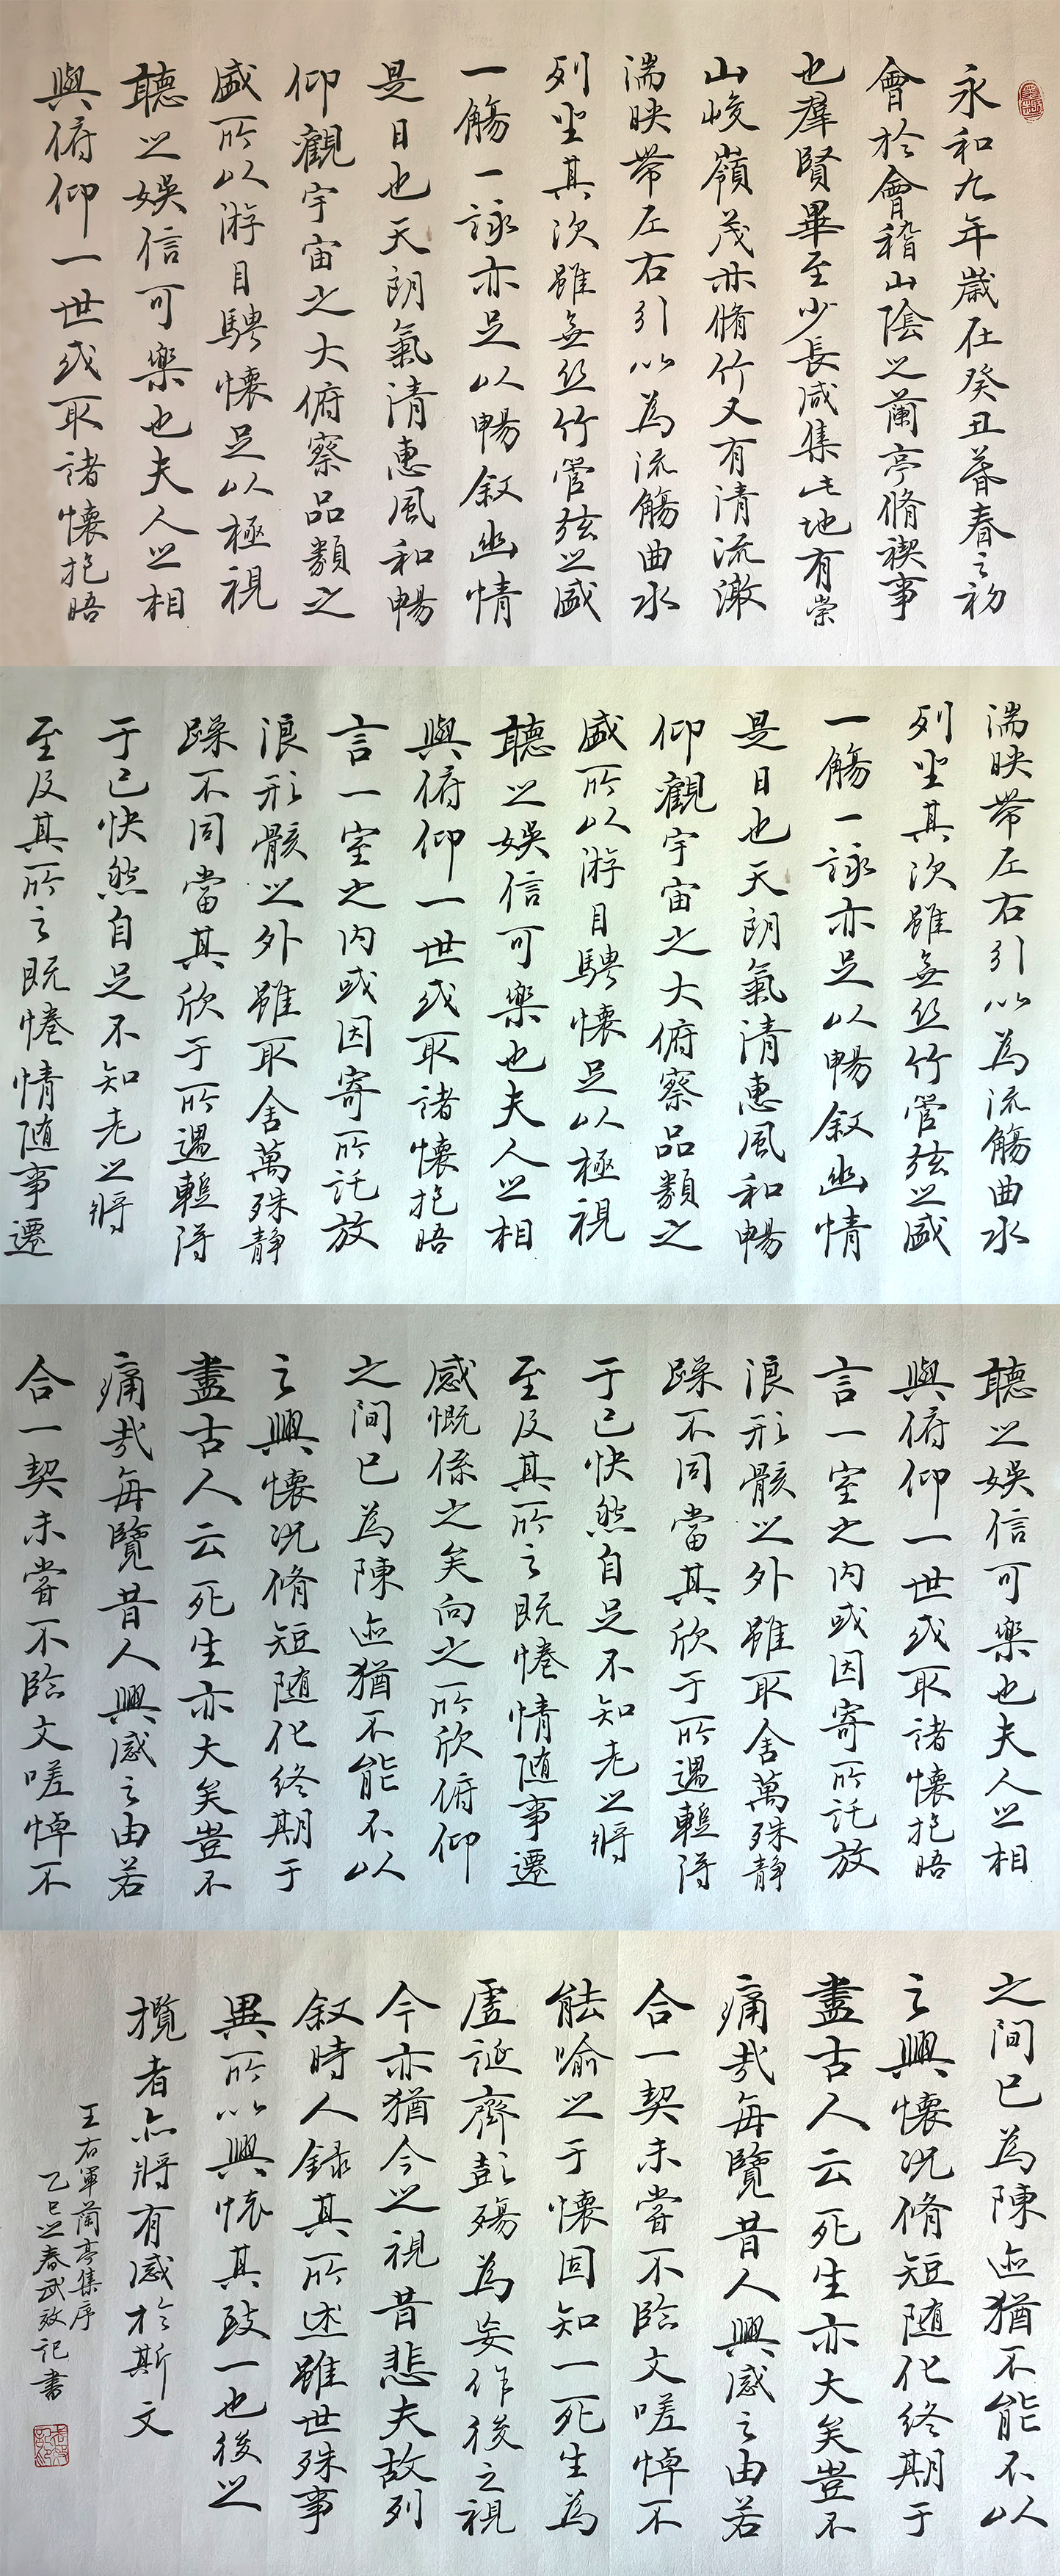 永和九年歲在癸丑暮春之初
會於會稽山陰之蘭亭脩禊事
也羣賢畢至少長咸集此地有崇
山峻嶺茂林脩竹又有清流激
湍映帶左右引以為流觴曲水
列坐其次雖無絲竹管弦之盛
一觴一詠亦足以暢敘幽情
是日也天朗氣清惠風和暢
仰觀宇宙之大俯察品類之
盛所以游目騁懷足以極視
聽之娛信可樂也夫人之相
與俯仰一世或取諸懷抱晤
湍映帶左右引以為流觴曲水
列坐其次雖無絲竹管弦之盛
一觴一詠亦足以暢敘幽情
是日也天朗氣清惠風和暢
仰觀宇宙之大俯察品類之
盛所以游目騁懷足以極視
聽之娛信可樂也夫人之相
與俯仰一世或取諸懷抱晤
言一室之內或因寄所託放
浪形骸之外雖取舍萬殊靜
躁不同當其欣于所遇輒得
于己快然自足不知老之將
至及其所之既惓情隨事遷
聽之娛信可樂也夫人之相
與俯仰一世或取諸懷抱晤
言一室之內或因寄所託放
浪形骸之外雖取舍萬殊靜
躁不同當其欣于所遇輒得
于己快然自足不知老之將
至及其所之既惓情隨事遷
感慨係之矣向之所欣俯仰
之間已為陳迹猶不能不以
之興懷況脩短隨化終期于
盡古人云死生亦大矣豈不
痛哉每覽昔人興感之由若
合一契未嘗不臨文嗟悼不
之間已為陳迹猶不能不以
之興懷況脩短隨化終期于
盡古人云死生亦大矣豈不
痛哉每覽昔人興感之由若
合一契未嘗不臨文嗟悼不
能喻之于懷固知一死生為
虛誕齊彭殤為妄作後之視
今亦猶今之視昔悲夫故列
敘時人錄其所述雖世殊事
異所以興懷其致一也後之
攬者亦將有感於斯文
王右軍蘭亭集序
乙巳之春武效記書